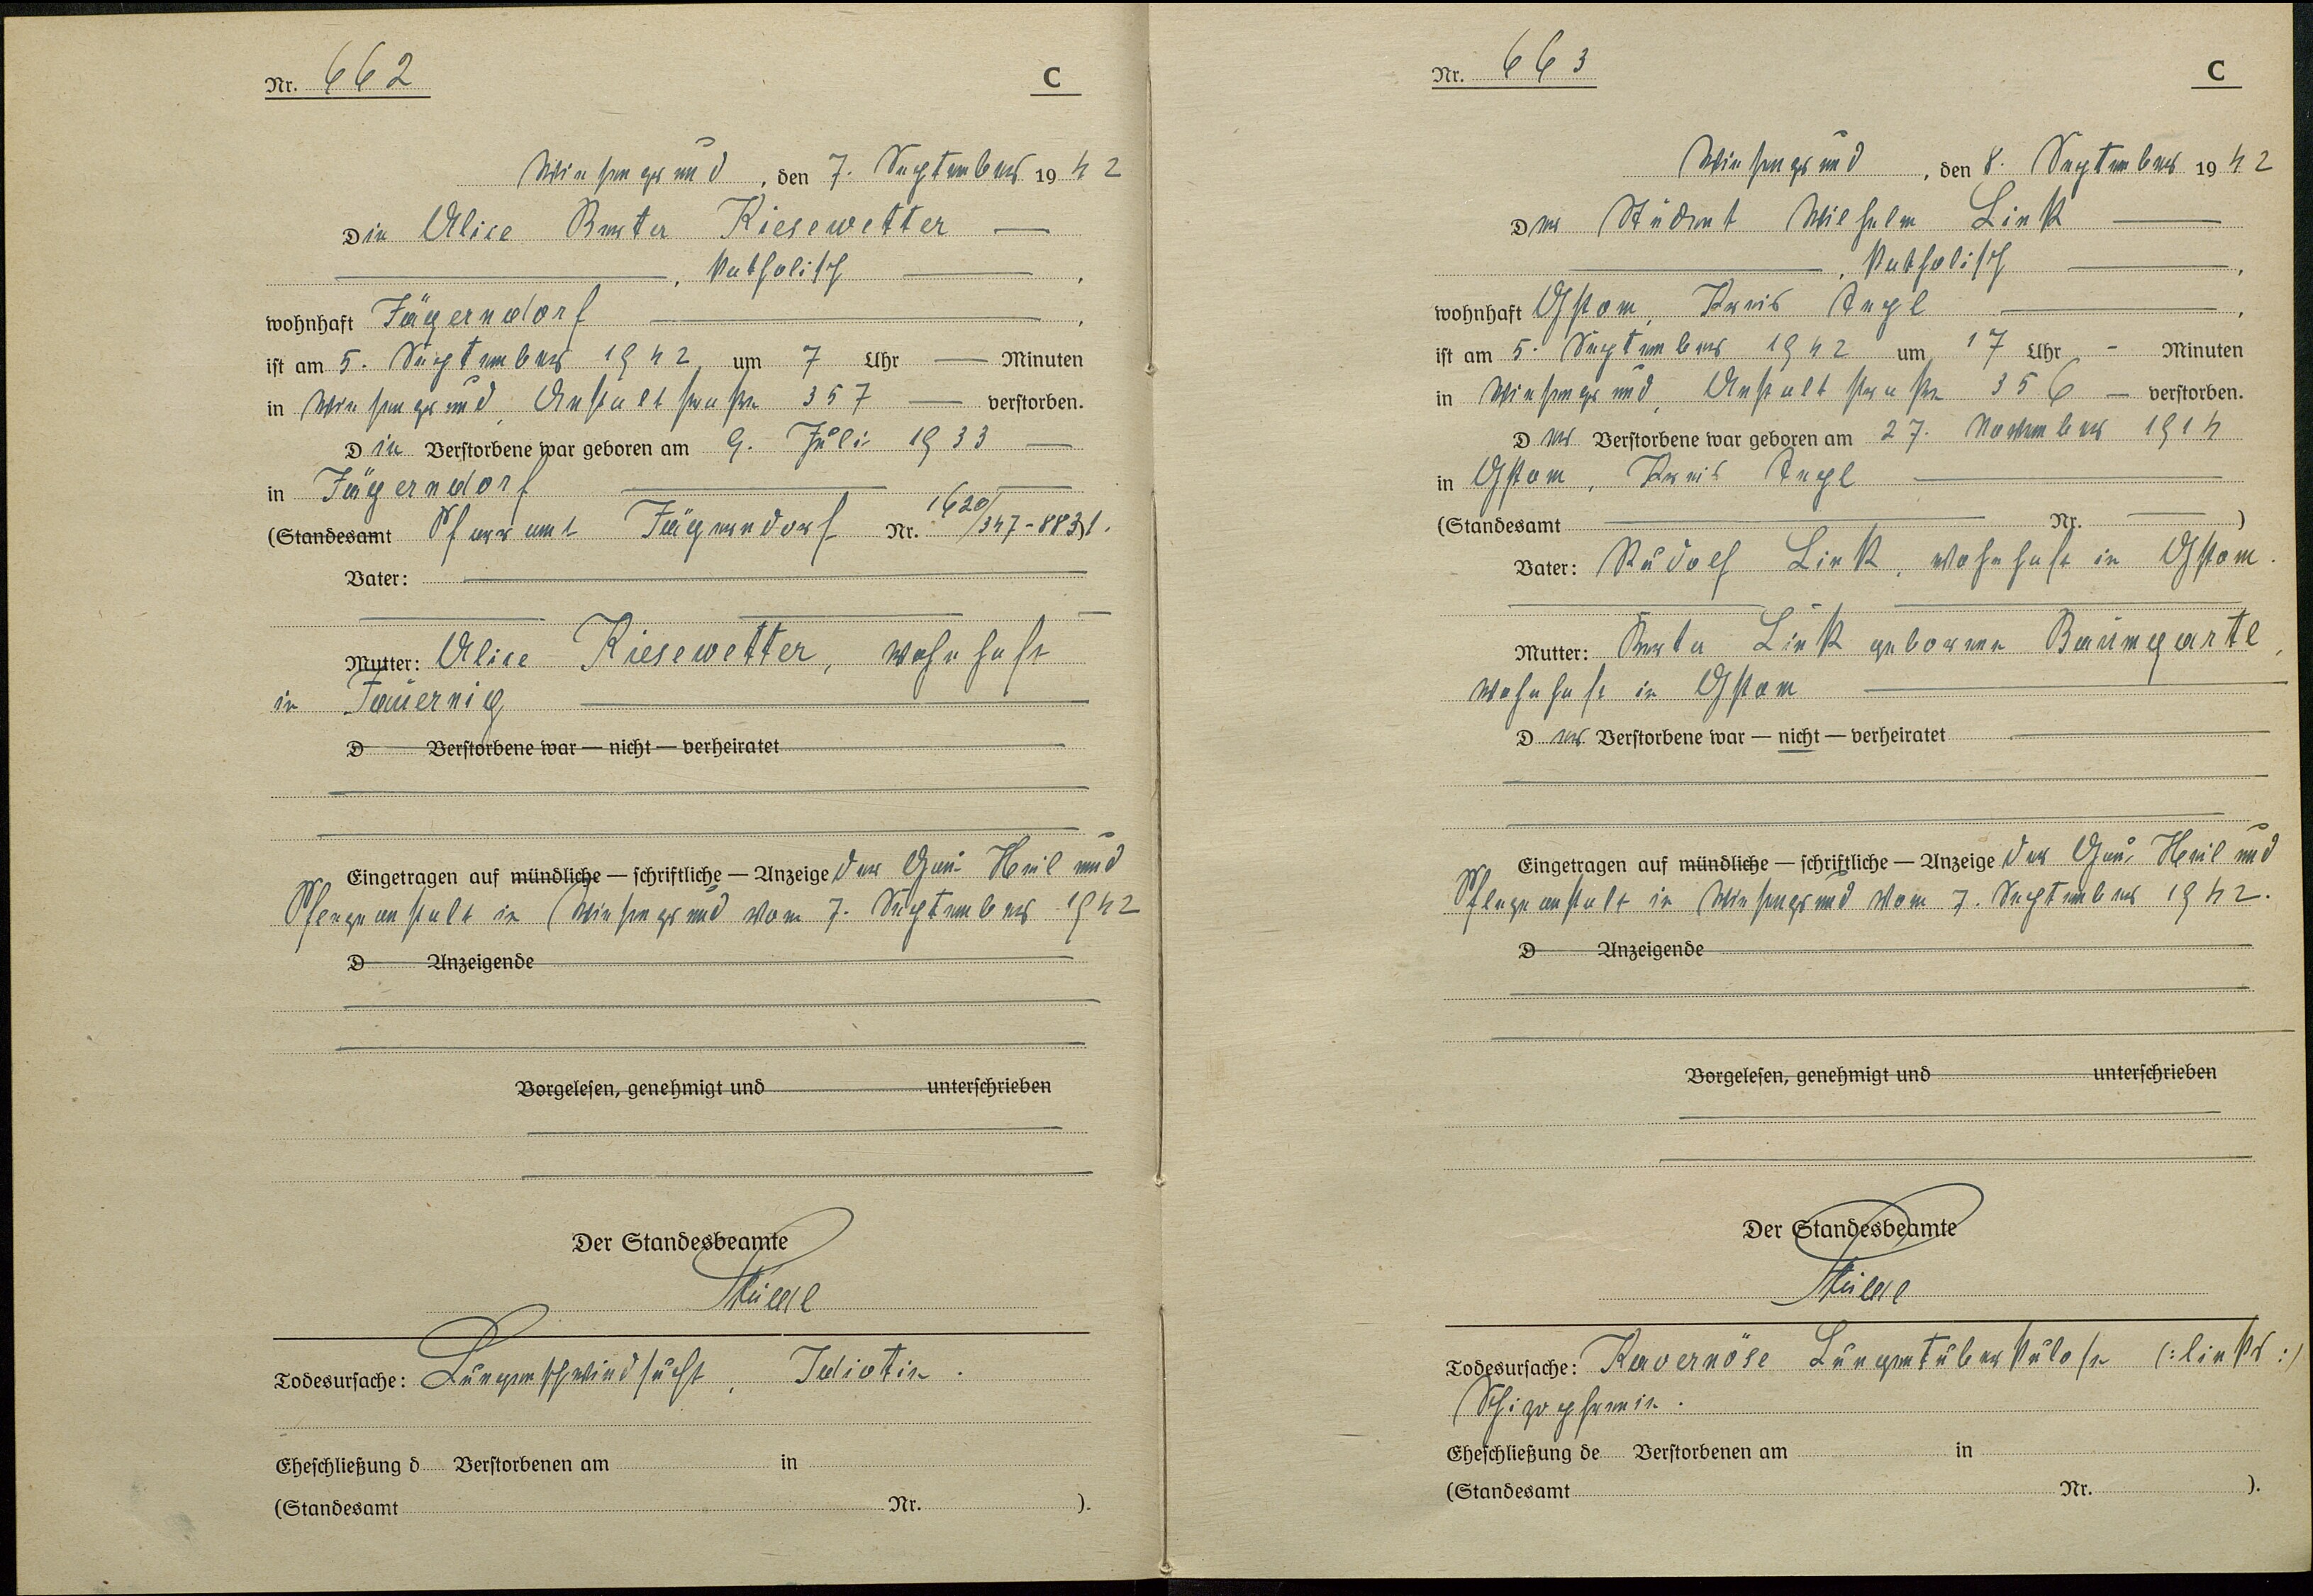 Nr. 662
C
Wiesengrund, den 7. September 1942
Die Alice Berta Kiesewetter
, katholisch ,
wohnhaft Jägerndorf ,
ist am 5. September 1942 um 7 Uhr — Minuten
in Wiesengrund, Anstaltstraße 357 — verstorben.
Die Verstorbene war geboren am 9. Juli 1933 —
in Jägerndorf
(Standesamt Pfarramt Jägerndorf Nr. 1620/347-883).
Vater:
Mutter: Alice Kiesewetter, wohnhaft
in Jauernig
D Verstorbene war — nicht — verheiratet
Eingetragen auf mündliche — schriftliche — Anzeige der Gau- Heil und
Pflegeanstalt in Wiesengrund vom 7. September 1942
D Anzeigende
Vorgelesen, genehmigt und unterschrieben
Der Standesbeamte
Todesursache: Lungenschwindsucht, Idiotie.
Eheschließung d Verstorbenen am in
(Standesamt Nr. ).
Nr. 663
C
Wiesengrund, den 8. September 1942
Der Student Wilhelm Link —
, katholisch ,
wohnhaft Gstom, Kreis Tepl ,
ist am 5. September 1942 um 17 Uhr - Minuten
in Wiesengrund, Anstaltstraße 356 — verstorben.
Der Verstorbene war geboren am 27. November 1914
in Gstom, Kreis Tepl
(Standesamt Nr. )
Vater: Rudolf Link, wohnhaft in Gstom.
Mutter: Berta Link geborene Baumgartl,
wohnhaft in Gstom
Der Verstorbene war — nicht — verheiratet
Eingetragen auf mündliche — schriftliche — Anzeige der Gau- Heil und
Pflegeanstalt in Wiesengrund vom 7. September 1942.
D Anzeigende
Vorgelesen, genehmigt und unterschrieben
Der Standesbeamte
Todesursache: Kavernöse Lungentuberkulose (:links:)
Schizophrenie.
Eheschließung de Verstorbenen am in
(Standesamt Nr. ).